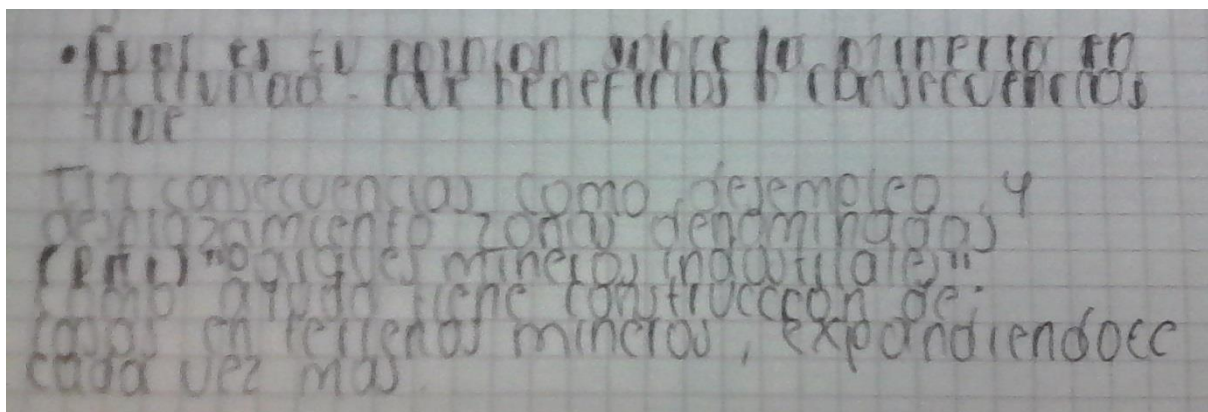 • es tu opinion sobre la mineria en
la ciudad. que beneficios y consecuencias
tiae
consecuencias como desempleo y
desplazamiento zonas denominadas
mineros industriales"
como ayuda tiene construccion de
casas en terrenos mineros, expandiendocc
cada vez mas.